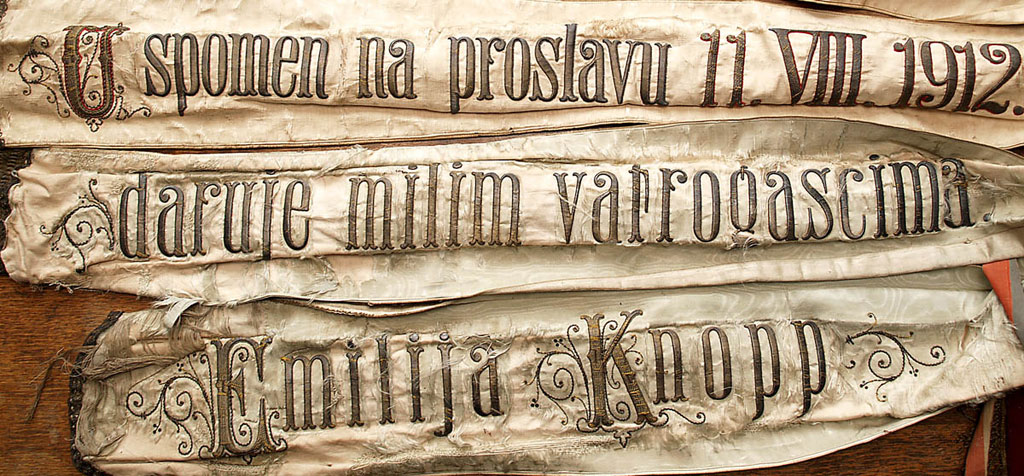 U spomen na proslavu 11. VIII. 1912.
daruje milim vatrogascima.
Emilija Knopp